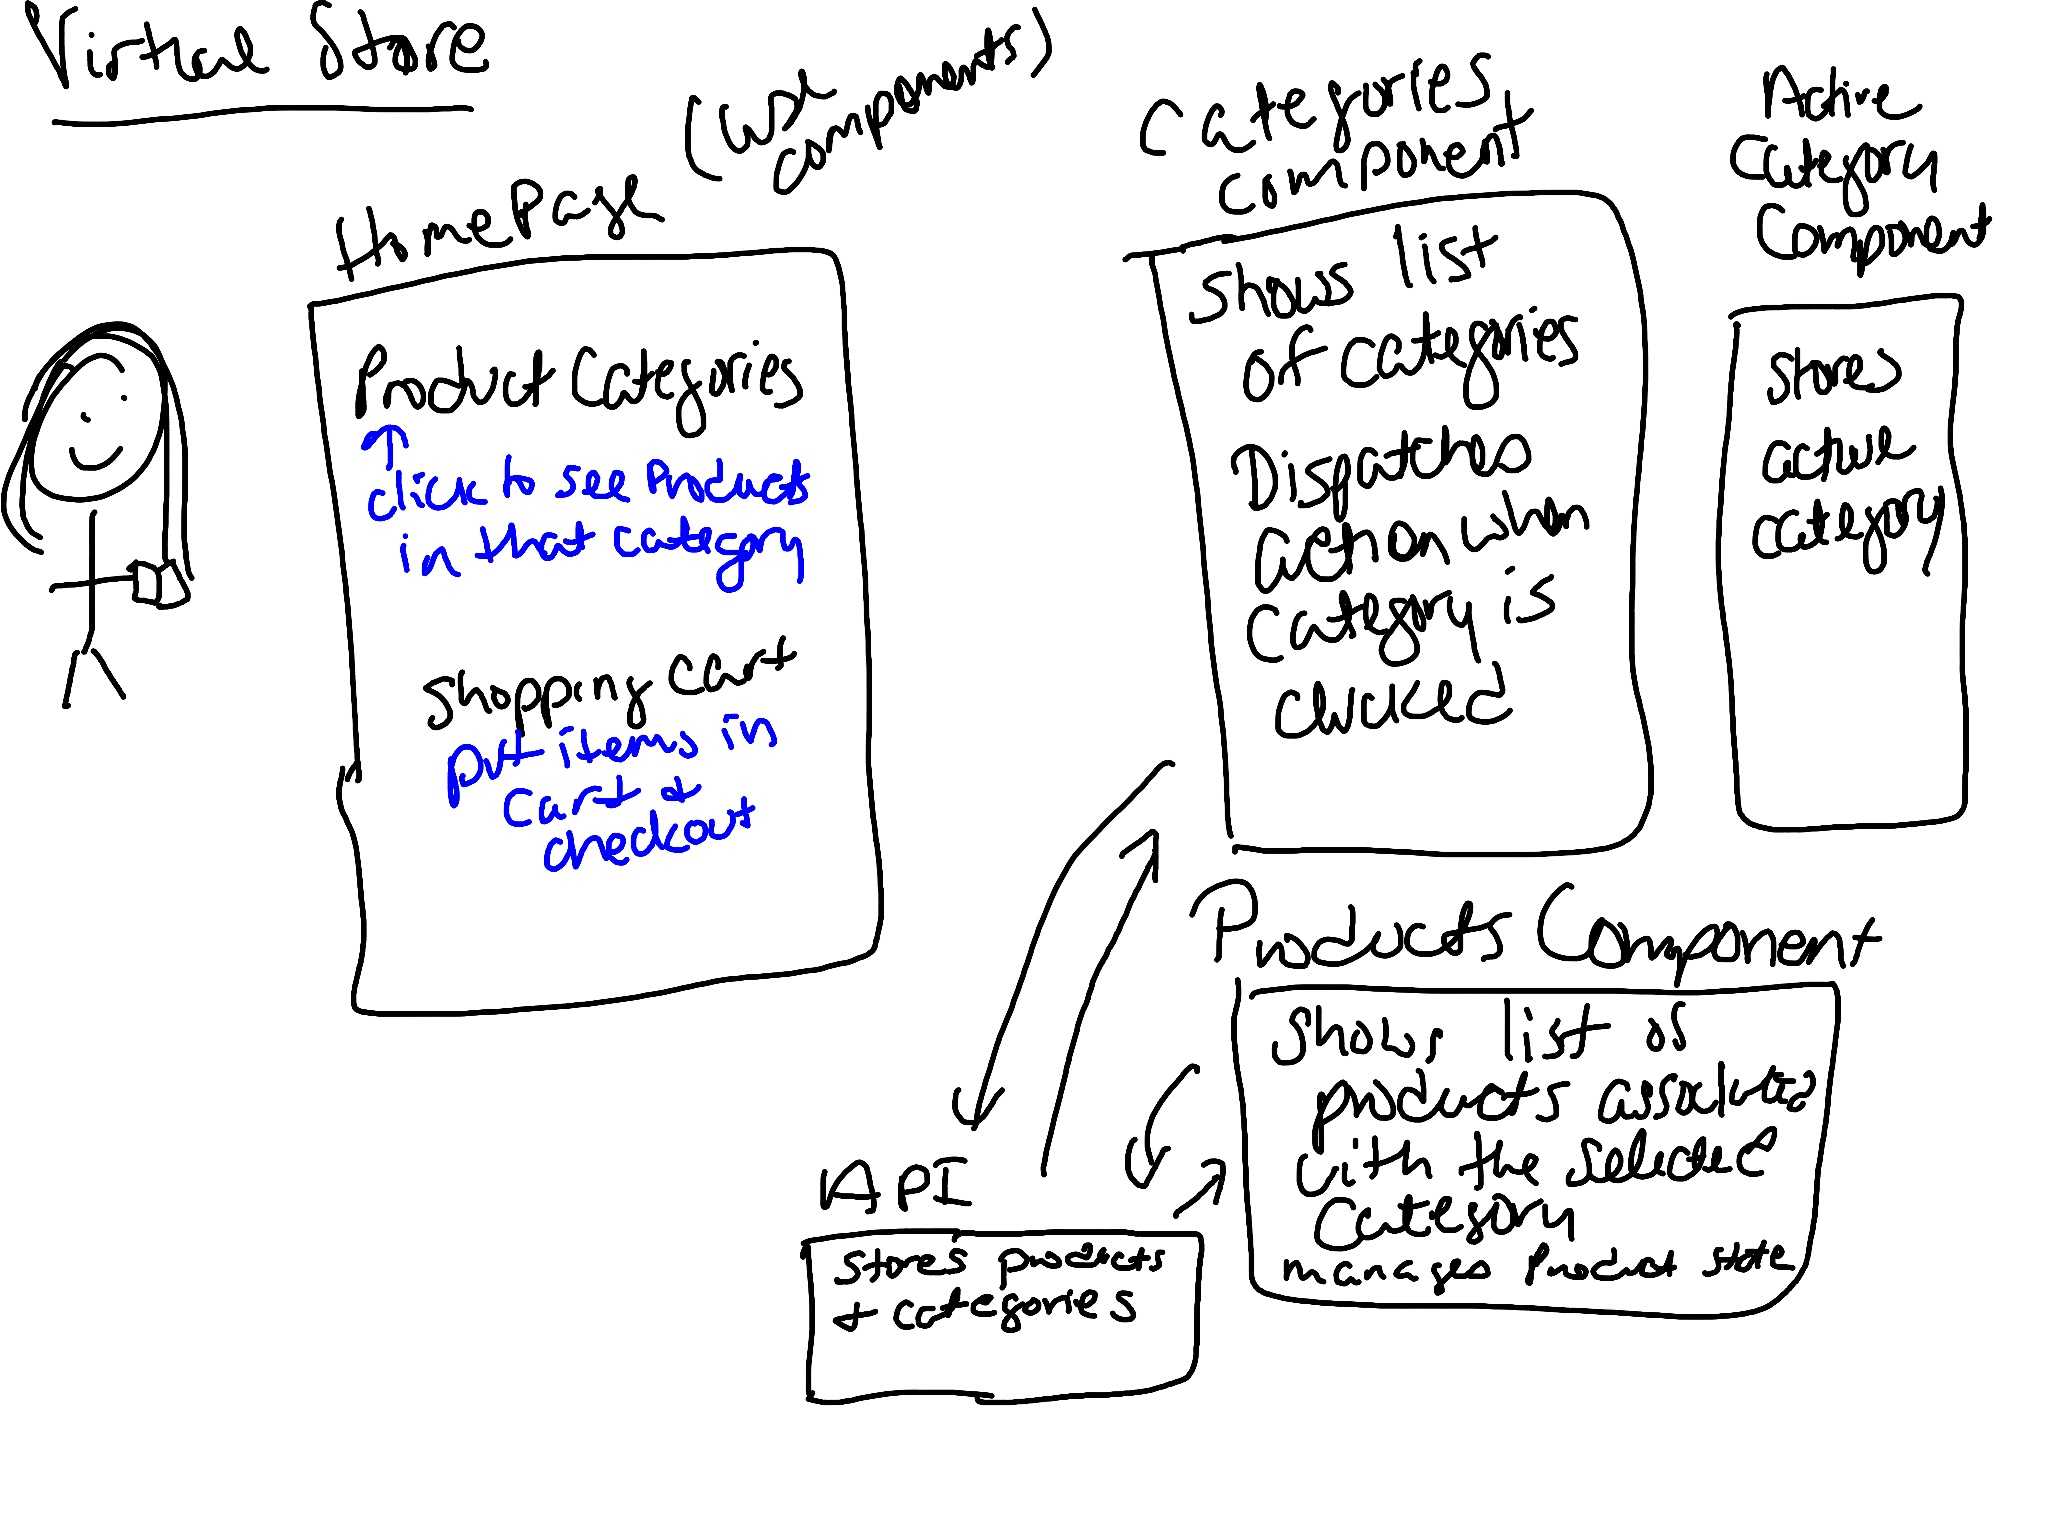 Virtual Store
HomePage
(use
components)
Product Categories
click to see Products
in that category
Shopping cart
put items in
cart &
checkout
Categories
component
Shows list
of categories
Dispatches
action when
category is
clicked
Active
Category
Component
stores
active
category
API
stores products
+ categories
Products Component
Shows list of
products associated
with the selected
category
manages Product state